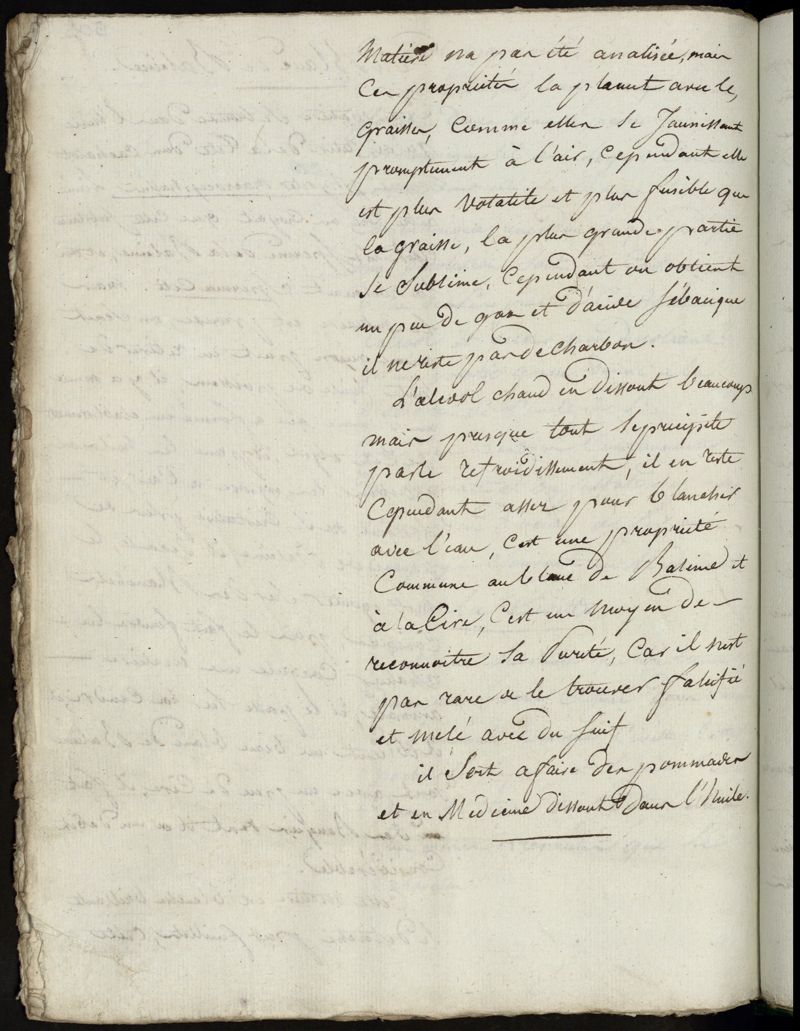 Matiere na pas été analisée, mais
Ces proprietés la placent avec le,
graisses, Comme elles Se Jaunissent
promptement à l'air, Cependant elle
est plus Volatile et plus fusible que
la graisse, la plus grande partie
Se Sublime, Cependant on obtient
un peu de gas et d'acide Sébacique
il ne reste pas de charbon.
L'alcool chaud en dissout beaucoup
mais presque tout se precipite
par le refroidissement, il en reste
Cependant assez pour blanchir
avec l'eau, C'est une propriété
Commune au blanc de Baleine et
à la Cire, C'est un moyen de
reconnoitre Sa Pureté, Car il n'est
pas rare de le trouver falsifié
et melé avec du Suif
il Sert a faire des pommades
et en Médecine dissout dans l'huile.